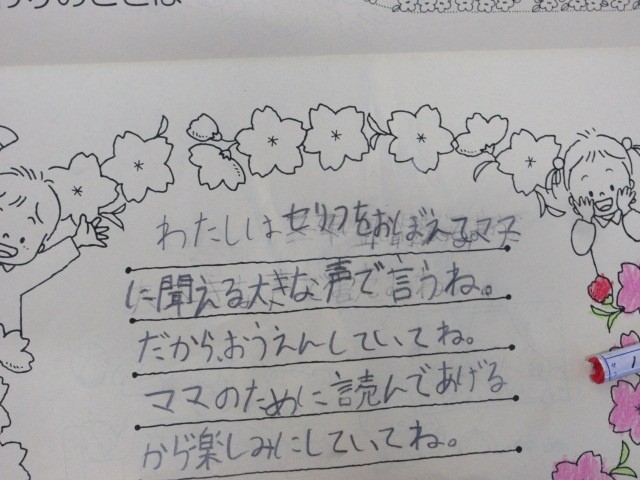 りのことば
わたしはセリフをおぼえてママ
に聞える大きな声で言うね。
だから、おうえんしていてね。
ママのために読んであげる
から楽しみにしていてね。